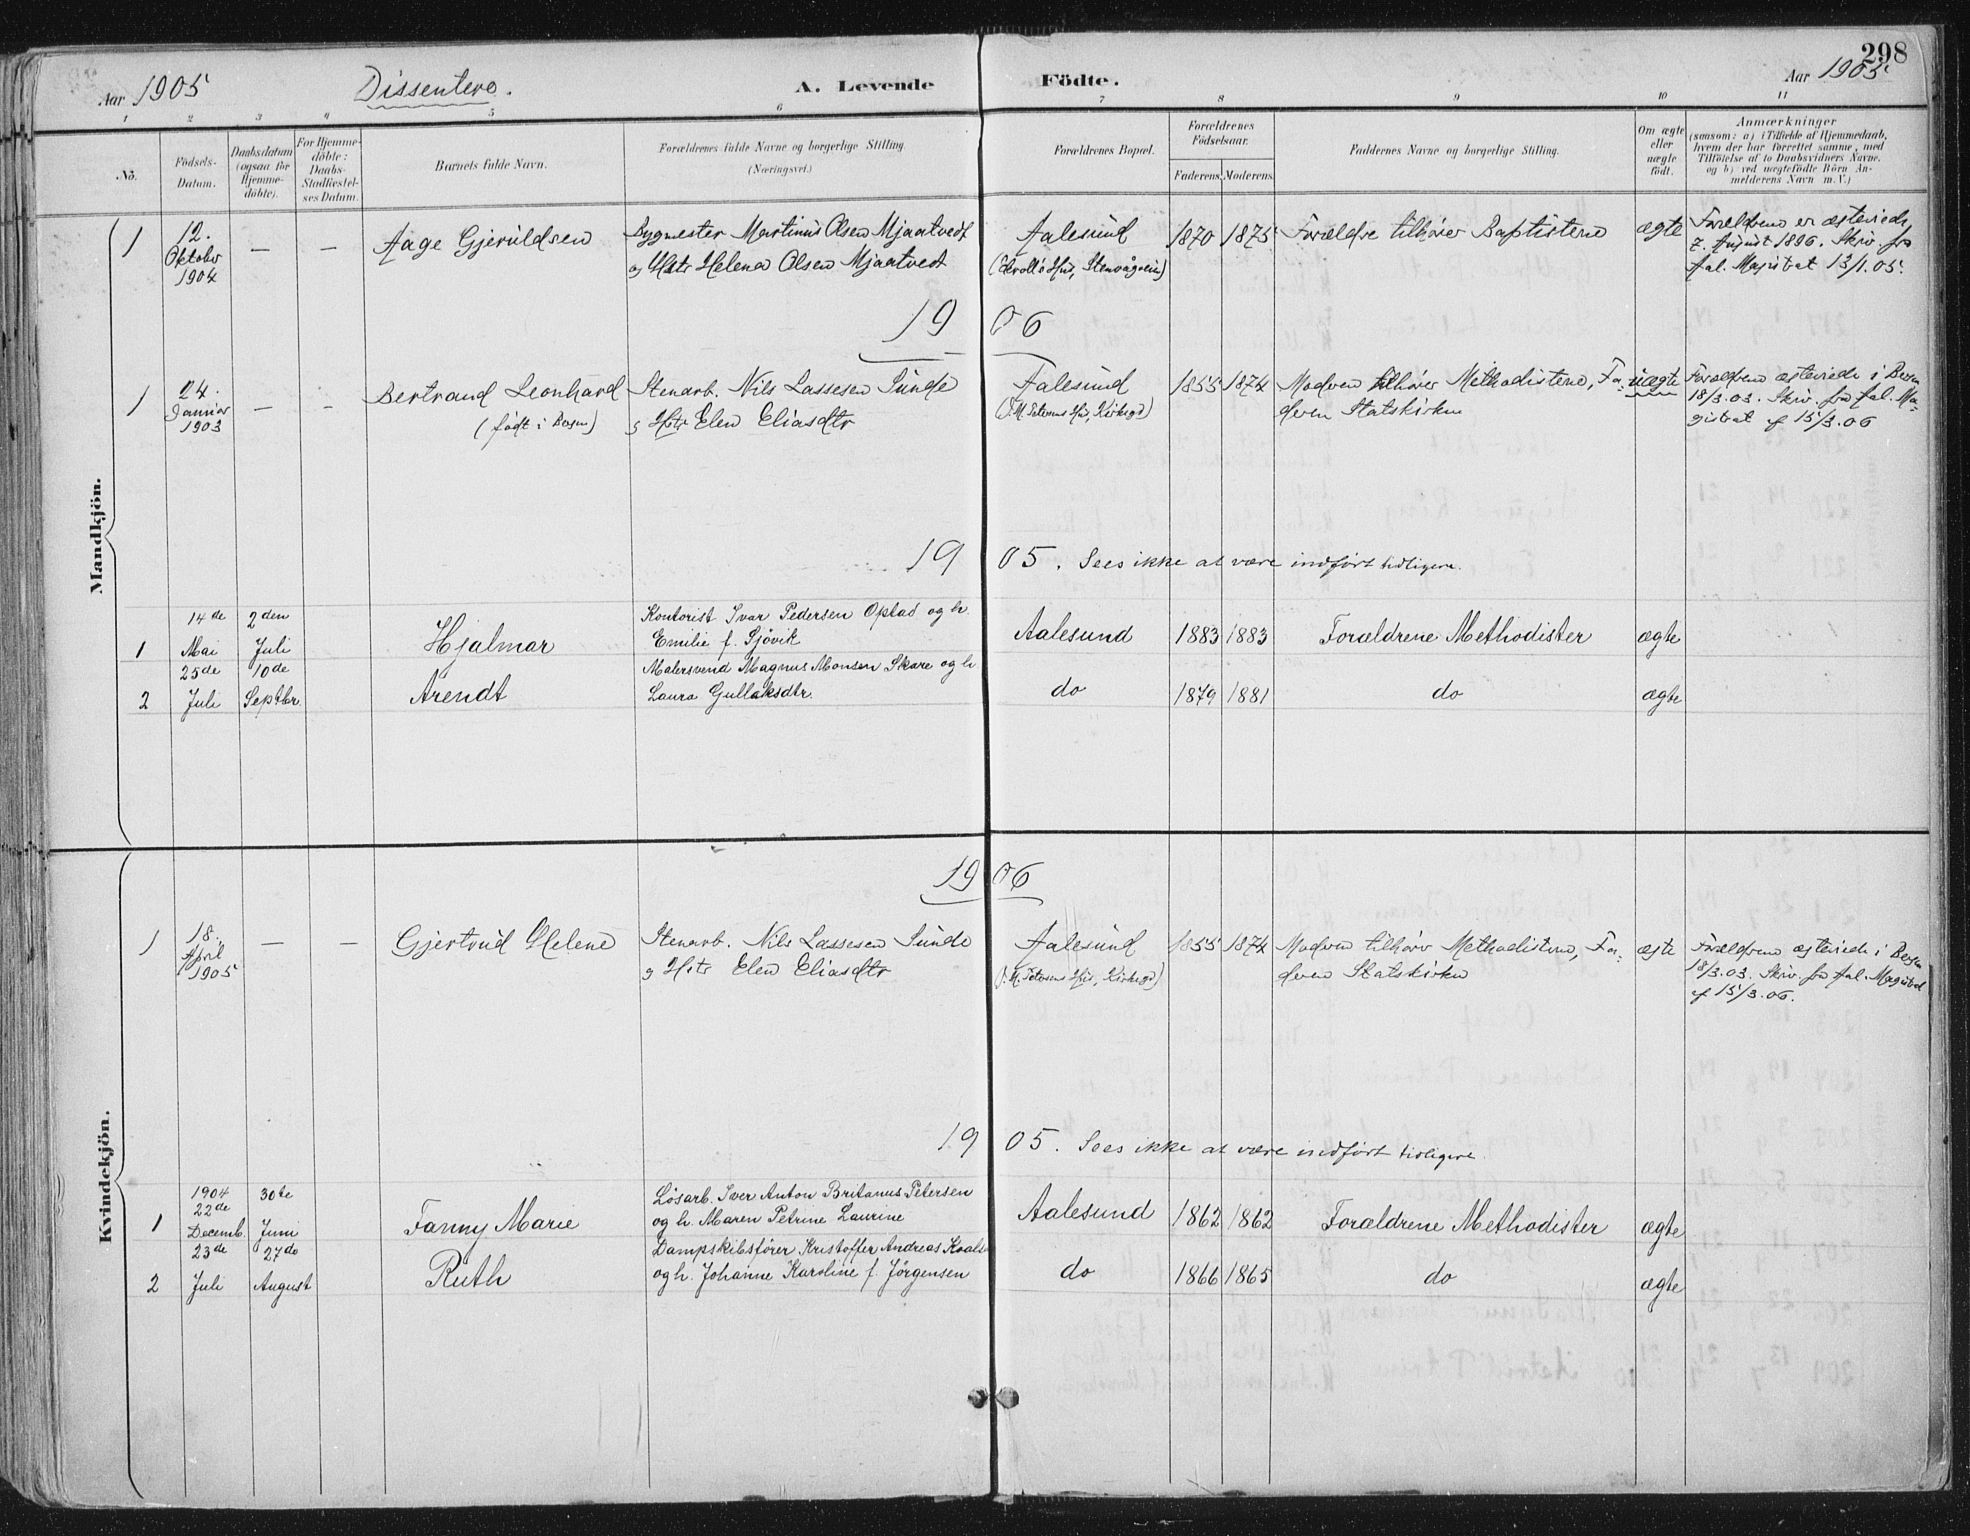 298
Aar 1905 Dissentere. A. Levende Födte. Aar 1905
1 2 3 4 5 6 7 8 9 10 11
No. Födsels-Datum. Daabsdatum (ogsaa för Hjemme-döbte). For Hjemme-döbte: Daabs-Stadfæstel-ses Datum. Barnets fulde Navn. Forældrenes fulde Navne og borgerlige Stilling. (Næringsvei.) Forældrenes Bopæl. Forældrenes Födselsaar. Faderens. Moderens. Faddernes Navne og borgerlige Stilling. Om ægte eller uægte födt. Anmærkninger (saasom: a) i Tilfælde af Hjemmedaab, hvem der har forrettet samme, med Tilföielse af to Daabsvidners Navne. og b) ved uægtefödte Börn An-melderens Navn m. V.)
Mandkjön.
1 12. Oktober 1904 — — Aage Gjeruldsen
Bygmester Martinus Olsen Mjaatvedt
og Hstr Helena Olsen Mjaatvedt
Aalesund
1870 1875 Forældre tilhører Baptisterne ægte
Forældrene er ægteviede
7. August 1896. Skriv. fra
Aal. Magistrat 13/1.05.
19 06
1 24. Januar 1903 — — Bertrand Leonhard
(født i Bergen)
Stenarb. Nils Lassesen Sunde
og Hstr Elen Eliasdtr
Aalesund
1855 1874 Moderen tilhører Methodisterne, Fa-
deren Statskirken
uægte
Forældrene ægteviede i Bergen
18/3.03. Skriv. fra Aal. Ma-
gistrat af 15/3.06
19 05. Sees ikke at være indført tidligere.
1 14de Mai 2den Juli Hjalmar
Kontorist Ivar Pedersen Opstad og h.
Emilie f. Sjövik
Aalesund 1883 1883 Forældrene Methodister ægte
2 25de Juli 10de Septbr. Arendt
Malersvend Magnus Monsen Skare og h
Laura Gullaksdtr.
do 1879 1881 do ægte
Kvindekjön.
19 06
1 18. April 1905 — — Gjertrud Helene
Stenarb. Nils Lassesen Sunde
og Hstr Elen Eliasdtr
Aalesund
1855 1874 Moderen tilhører Methodisterne, Fa-
deren Statskirken
ægte
Forældrene ægteviede i Bergen
18/3.03. Skriv. fra Aal. Magistrat
af 15/3.06.
19 05. Sees ikke at være indført tidligere.
1 1904 22de Decemb. 30te Juni Fanny Marie
Lösarb. Iver Anton Britanus Petersen
og h. Maren Petrine Laurine
Aalesund 1862 1862 Forældrene Methodister ægte
2 23de Juli 27do August Ruth
Dampskibsfører Kristoffer Andreas
og h. Johanne Karoline f. Jörgensen
do 1866 1865 do ægte